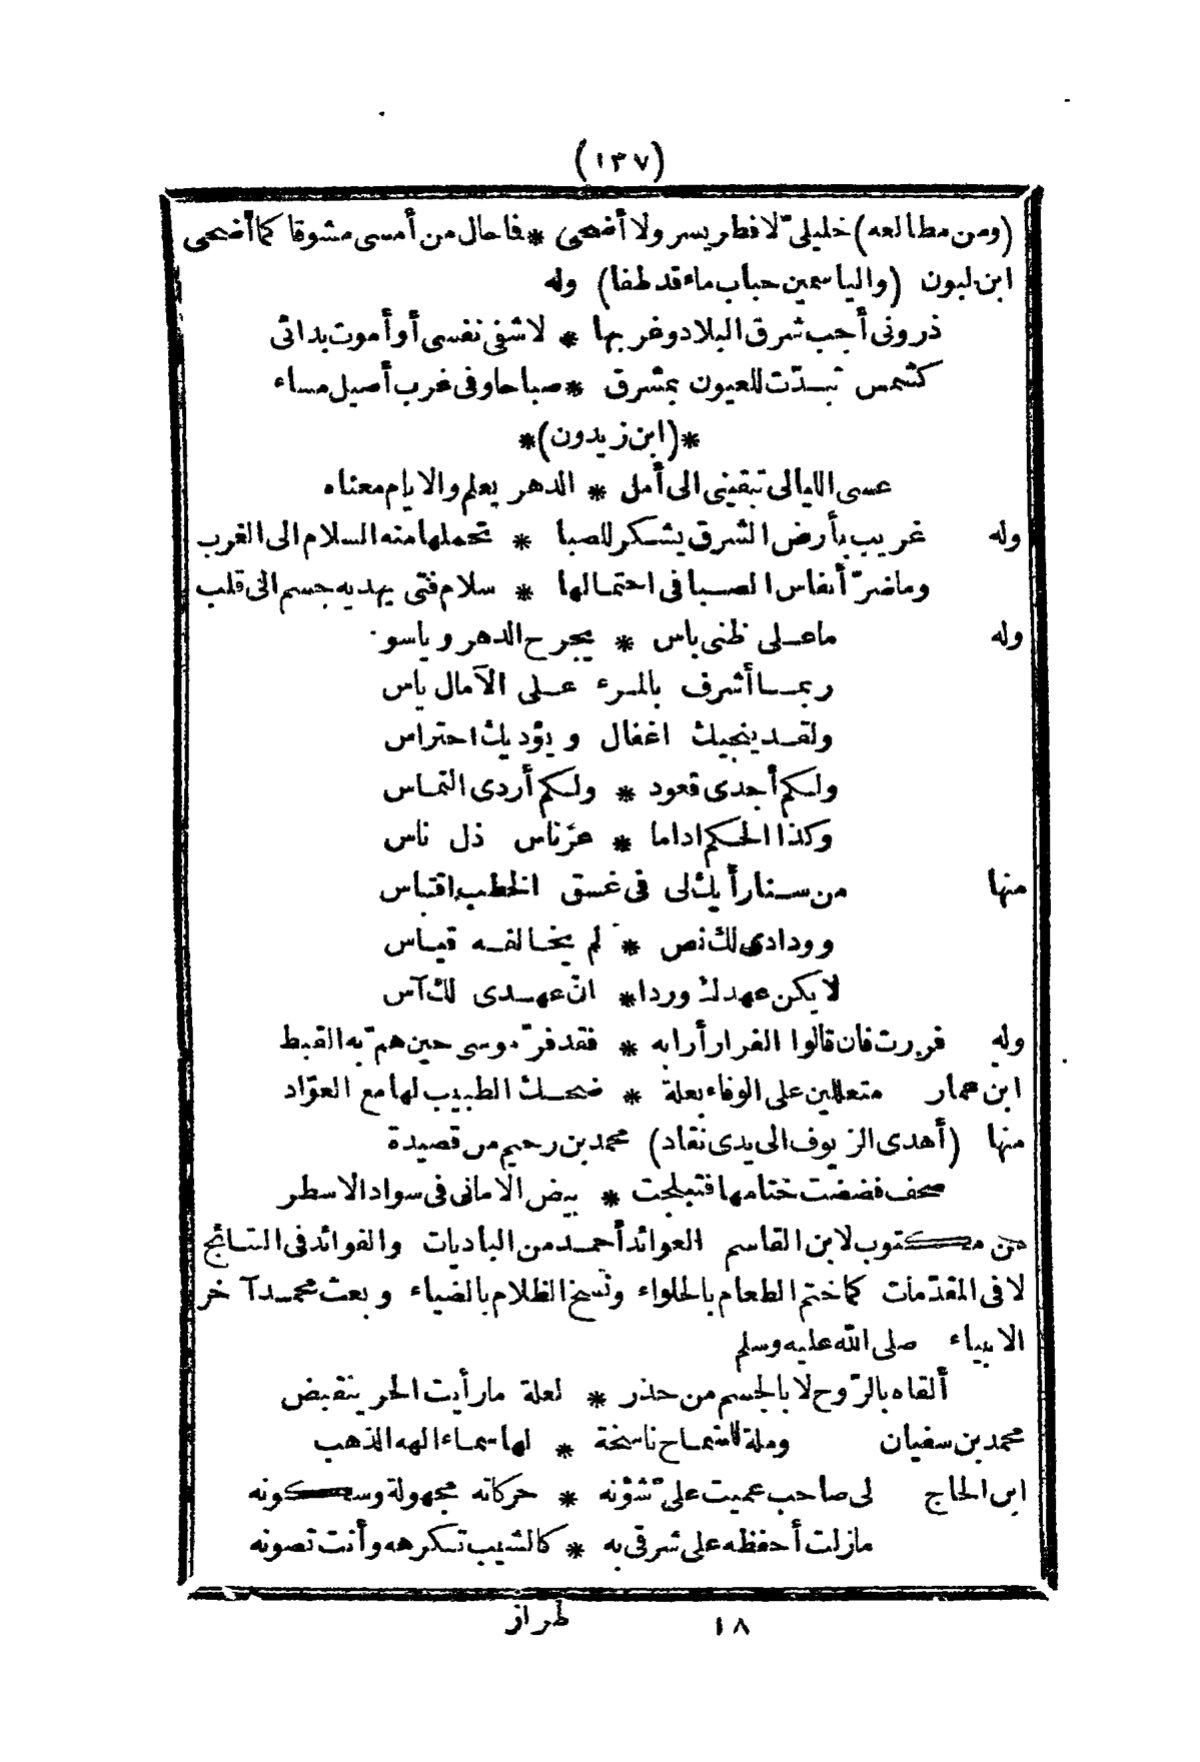 (١٣٧)
(ومن مطالعه) خليلىّ لا فطر يسر ولا أضحى * فما حال من أمسى مشوقا كما أضحى
ابن لبون (والياسمين حباب ماء قد طفا) وله
ذرونى أجب شرق البلاد وغربها * لاشفى نفسى أو أموت بدائى
كشمس تبدّت للعيون بمشرق * صباحا وفى غرب أصيل مساء
*(ابن زيدون)*
عسى الليالى تبقينى الى أمل * الدهر يعلم والايام معناه
وله غريب بأرض الشرق يشكر للصبا * تحملها منه السلام الى الغرب
وما ضرّ أنفاس الصبا فى احتمالها * سلام فتى يهديه جسم الى قلب
وله ما على ظنى باس * يجرح الدهر وياسو
ربما أشرف بالمرء على الآمال ياس
ولقد ينجيك اغفال ويؤديك احتراس
ولكم أجدى قعود * ولكم أردى التماس
وكذا الحكم اذا ما * عزّ ناس ذل ناس
منها من سنا رأيك لى فى غسق الخطب اقتباس
وودادى لك نص * لم يخالفه قياس
لا يكن عهدك وردا * انّ عهدى لك آس
وله فررت فان قالوا الفرار أرابه * فقد فرّ موسى حين همّ به القبط
ابن عمار متعللين على الوفاء بعلة * ضحك الطبيب لها مع العوّاد
منها (أهدى الزيوف الى يدى نقاد) محمد بن رحيم من قصيدة
صحف فضضت ختامها فتبلجت * بيض الامانى فى سواد الاسطر
من مكتوب لابن القاسم العوائد أحمد من الباديات والفوائد فى النتائج
لا فى المقدّمات كما ختم الطعام بالحلواء ونسخ الظلام بالضياء وبعث محمد آخر
الانبياء صلى الله عليه وسلم
ألقاه بالرّوح لا بالجسم من حذر * لعلة ما رأيت الحر ينقبض
محمد بن سفيان وملة للسماح ناسخة * لها سماء الهه الذهب
ابن الحاج لى صاحب عميت علىّ شؤنه * حركاته مجهولة وسكونه
مازلت أحفظه على شرقى به * كالشيب تكرهه وأنت تصونه
١٨ طراز